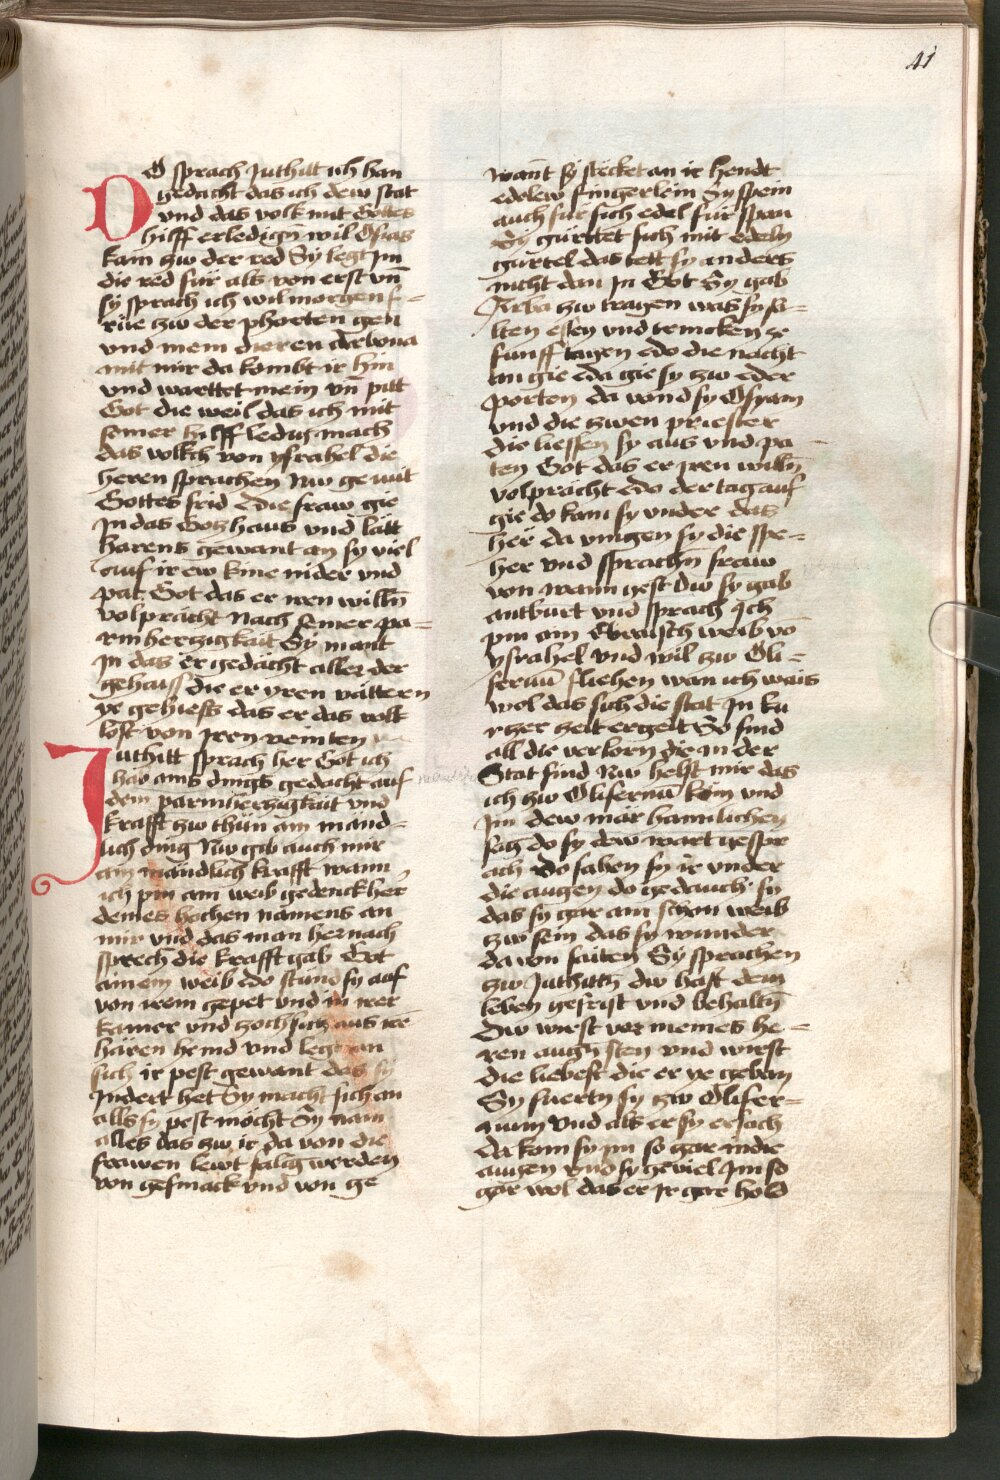 41
DO sprach Juthitt ich han
gedacht das ich dew stat
vnd das volk mit Gottes
hilff erledign̄ wil Osias
kam zw der red Sy legt Im
die red für als von erst vn̄
sy sprach ich wil morgen f=
rüe zw der phorten gen
vnd mein dieren
mit mir da kombt ir hin
vnd warttet mein vn̄ pitt
Got die weil das ich mit
seiner hilff ledig mach
das volkch von ysrahel die
heren sprachen Nw ge mit
Gottes frid Edie fraw gie
In das Gotzhaus vnd lätt
harens gewant an sy viel
auf ir ew knie nider vnd
pat Got das er iren willn̄
volpracht Nach seiner pa=
rmherzigkait Sy mant
In das er gedacht aller der
gehaiss die er yren vättern
ye gehiess das er das volk
löst von Iren veinten
Juthitt sprach her Got ich
hab ains dings gedacht auf
dein parmherzigkait vnd
krafft zw thün ain mand=
lich ding Nw gib auch mir
ain mandlich krafft wann
ich pin ain weib gedenck her
deines hochen namens an
mir vnd das man hernach
sprech die krafft gab Got
ainem weib Edo stünd sy auf
von irem gepet vnd in irer
kamer vnd zoch sich aus ire
hären hemd vnd legt an
sich ir pest gewant das sy
Indert het Sy macht sich an
alls sy pest mocht Sy nam
alles das zw ir da von die
frawen lewt salig werden
von gesmack vnd von ge
want sy stecket an ir hendt
edolew fingerlein Sy spein
auch für sich edel für span
Sy gürttet sich mit edeln
gürtel das tett sy anders
nicht dan In Got Sy gab
Arba zw tragen was sy so=
lten essen vnd trincken ze
funff tagen Edo die nacht
an gie Eda gie sy zw Eder
porten da vond sy Osyam
vnd die zwen priester
die liessen sy aus vnd pa=
ten Got das er iren willn̄
volpracht Edo der tag auf
gie do kam sy vnder das
her da viengen sy die spe=
her vnd sprachn̄ fraw
von wann gest Dw sy gab
antburt vnd sprach Ich
pin ain Ebraisch weib vō
ysrahel vnd wil zw Oli=
fernū fliehen wan ich wais
wol das sich die stat In ku
rtzer zeit ergeit So sind
all die verlorn die in der
Stat sind Nw helft mir das
ich zw Olifernū köm vnd
Im dew mär hamlichen
sag do sy dew wart gespr
ach Edo sahen sy ir vnder
die augen do gedauch sy
das sy gar ain schon weib
zw sein das sy wunder
da von saiten Sy sprachen
zw Juthittn̄ dw hast dein
leben gefrist vnd behaltn̄
Dw wirst vor meines he=
ren augn̄ sten vnd wirst
die liebest die er ye geban
Sy fuertn sy zw Olifer=
num vnd als er sy ersach
Da kom sy im so gar in die
augen vnd sy geviel Im so
gar wol das er Ir gar hold